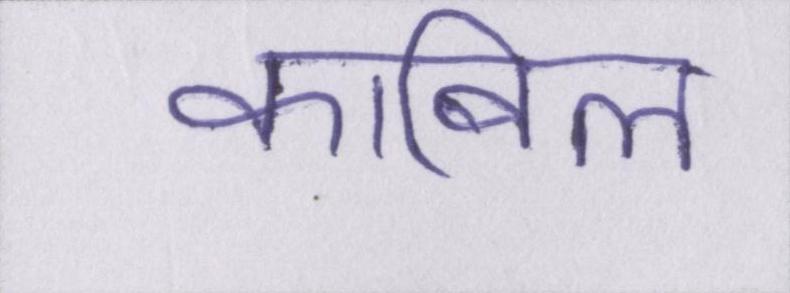 काबिल